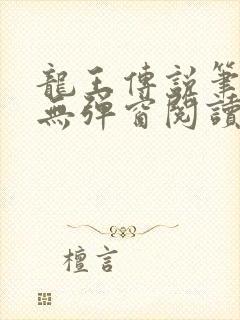 龍王傳說筆
無彈窗閱讀
檀言